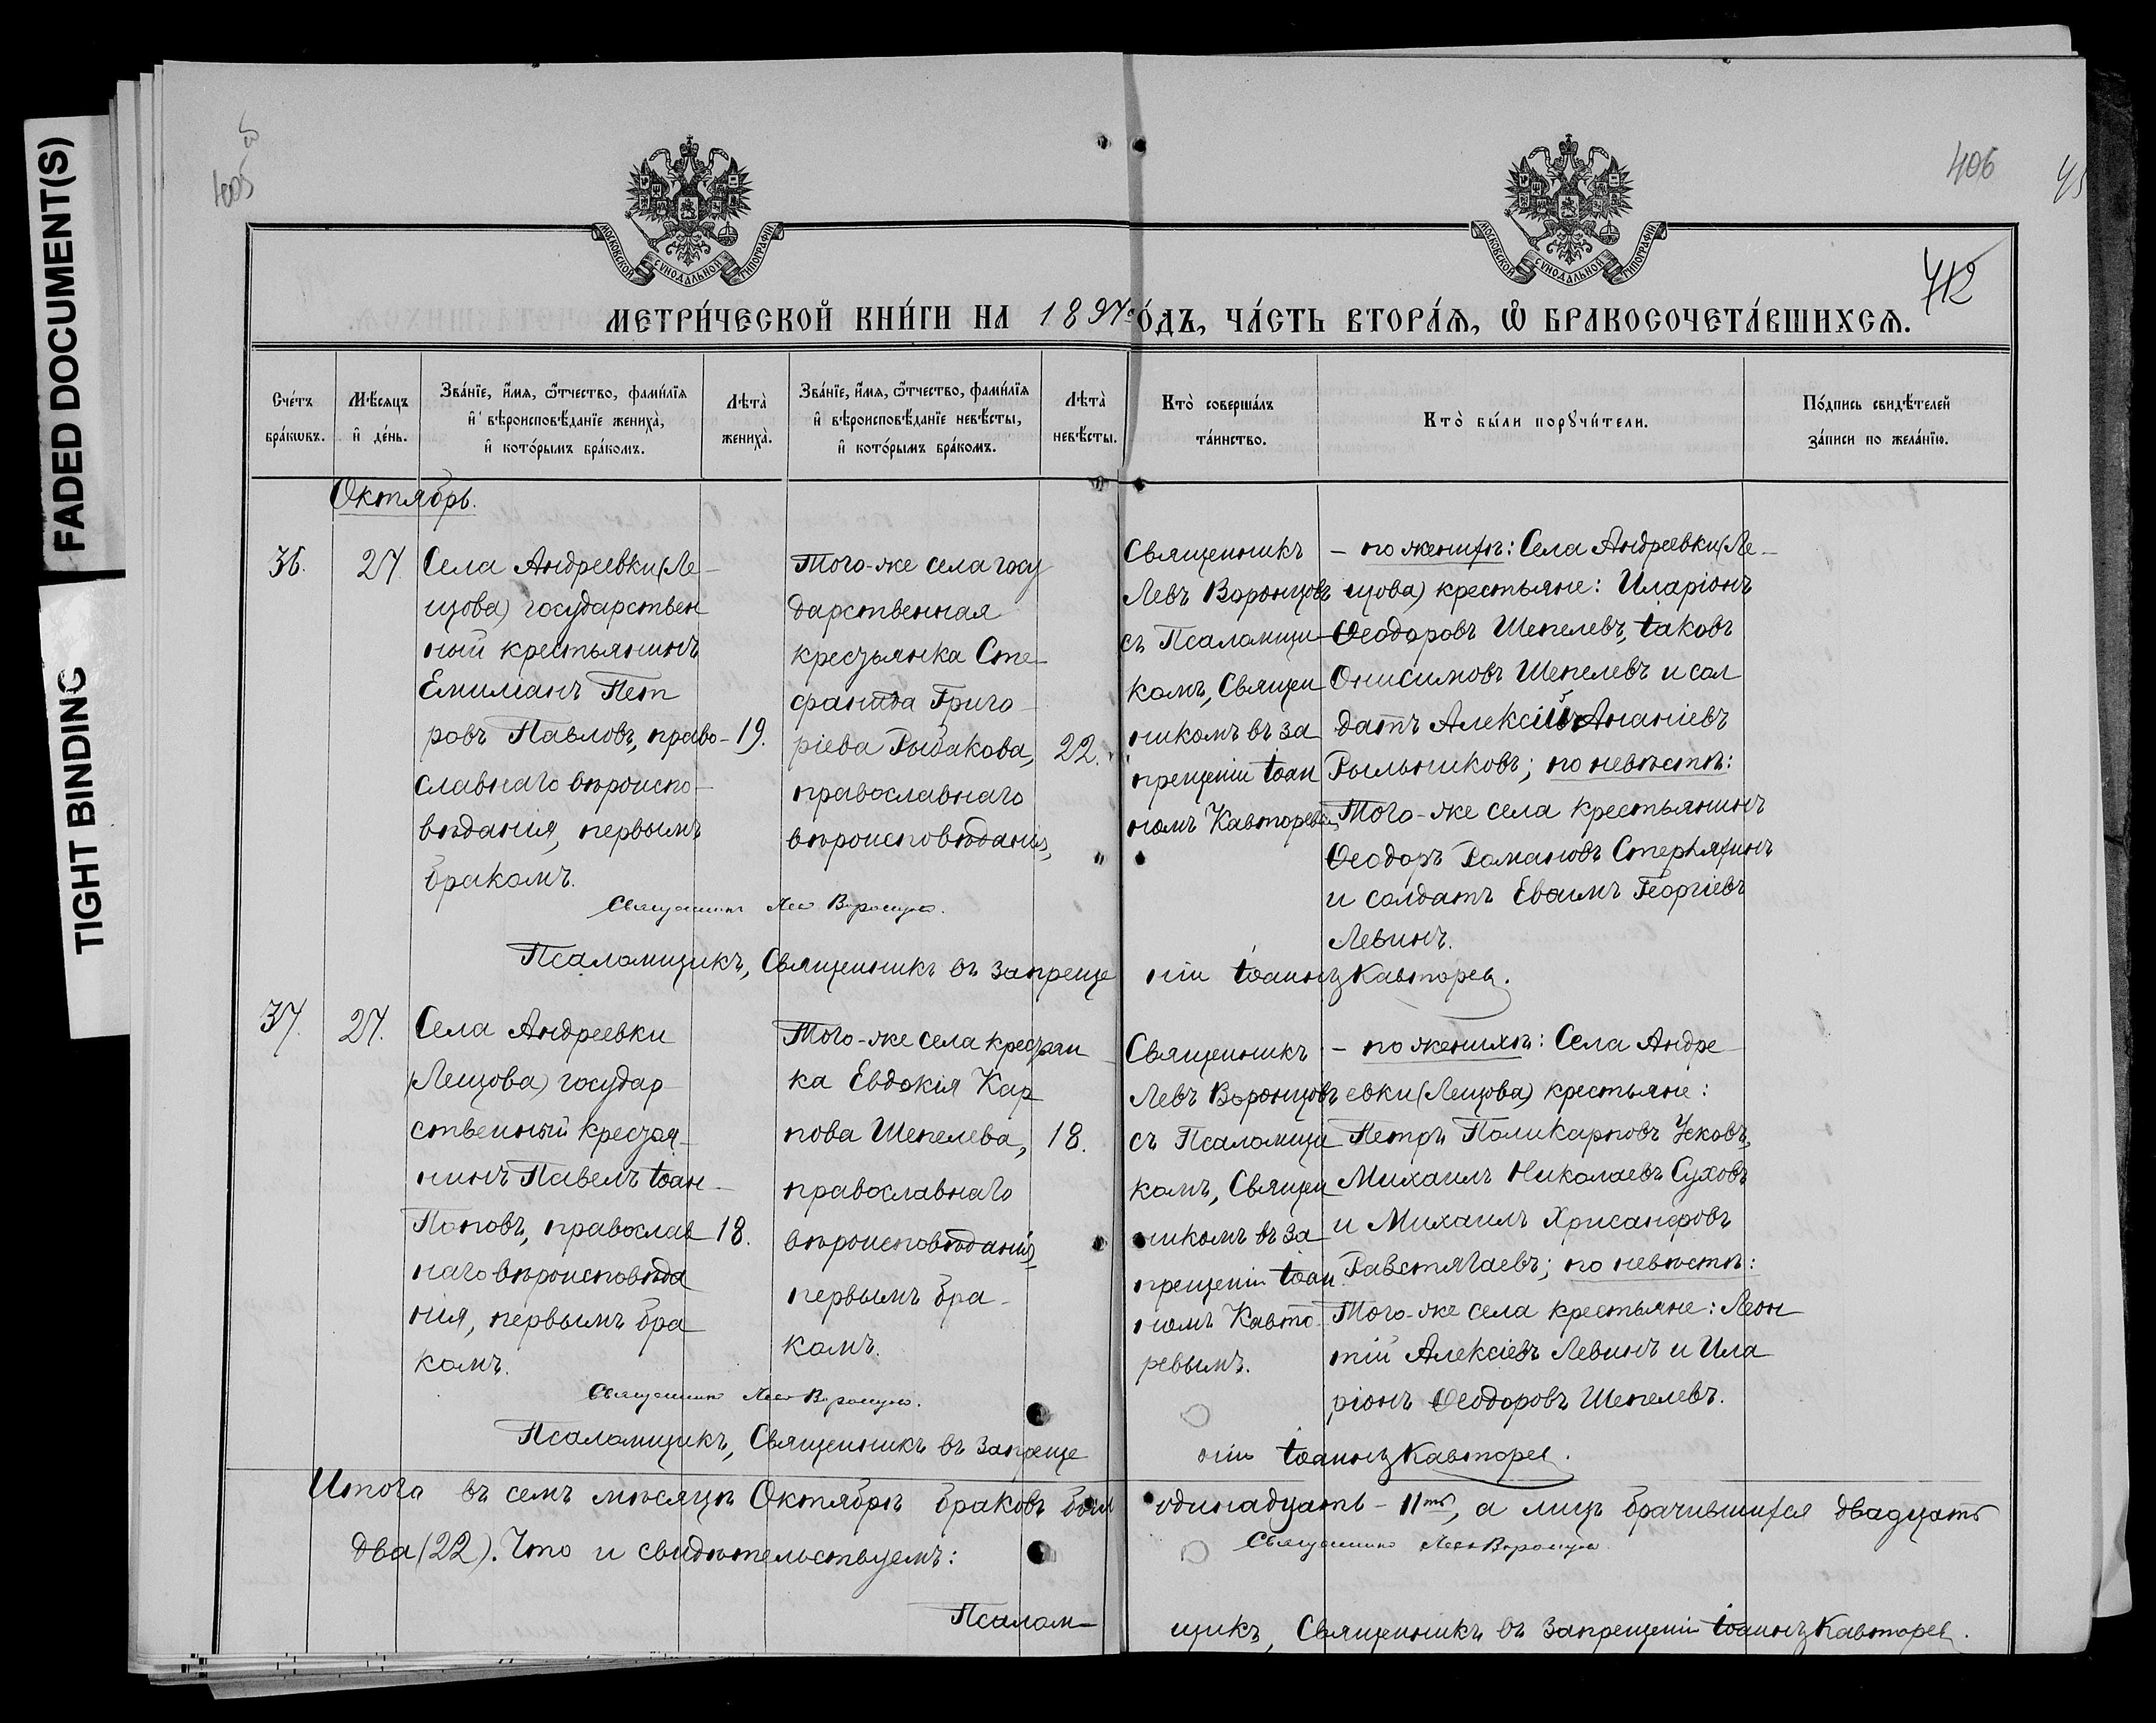 FADED DOCUMENT(S)
TIGHT BINDING
405
406
412
МОСКОВСКОЙ СѴНОДАЛЬНОЙ ТИПОГРАФІИ
МОСКОВСКОЙ СѴНОДАЛЬНОЙ ТИПОГРАФІИ
МЕТРИ́ЧЕСКОЙ КНИ́ГИ НА 1897 го́дъ, ЧА́СТЬ ВТОРА́Я, Ѿ БРАКОСОЧЕТА́ВШИХСЯ.
Сче́тъ
бра́кѡвъ.
Мѣ́сяцъ
и҆ де́нь.
Зва́нїе, и҆́мя, ѻ҆́тчество, фами́лїя
и҆ вѣроисповѣ́данїе жениха̀,
и҆ кото́рымъ бра́комъ.
Лѣта̀
жениха̀.
Зва́нїе, и҆́мя, ѻ҆́тчество, фами́лїя
и҆ вѣроисповѣ́данїе невѣ́сты,
и҆ кото́рымъ бра́комъ.
Лѣта̀
невѣ́сты.
Кто̀ соверша́лъ
та́инство.
Кто̀ бы́ли порꙋчи́тели.
По́дпись свидѣ́телей
за́писи по жела́нїю.
Октябрь.
36.
27.
Села Андреевки (Ле-
щова) государствен
ный крестьянинъ
Емиліанъ Пет
ровъ Павловъ, право-
славнаго вѣроиспо-
вѣданія, первымъ
бракомъ.
19.
Того-же села госу
дарственная
крестьянка Сте-
фанида Григо-
ріева Рыбакова,
православнаго
вѣроисповѣданія,
22.
Священникъ
Левъ Воронцовъ
съ Псаломщи-
комъ, Священ
никомъ въ за
прещеніи Іоан
номъ Кавторевъ
- по женихѣ: Села Андреевки (Ле-
щова) крестьяне: Иларіонъ
Ѳеодоровъ Шепелевъ, Іаковъ
Онисимовъ Шепелевъ и сол
датъ Алексій Ананіевъ
Рыльниковъ; по невѣстѣ:
Того-же села крестьянинъ
Ѳеодоръ Романовъ Стерляхинъ
и солдатъ Евѳимъ Георгіевъ
Левинъ.
Священникъ Левъ Воронцовъ.
Псаломщикъ, Священникъ въ запреще ніи Іоаннъ Кавторевъ.
37.
27.
Села Андреевки
(Лещова) государ
ственный крестья-
нинъ Павелъ Іоан-
Поповъ, православ
наго вѣроисповѣда
нія, первымъ бра
комъ.
18.
Того-же села крестьян
ка Евдокія Кар
пова Шепелева,
православнаго
вѣроисповѣданія,
первымъ бра-
комъ.
18.
Священникъ
Левъ Воронцовъ
съ Псаломщи
комъ, Священ
никомъ въ за
прещеніи Іоан
номъ Кавто-
ревымъ.
- по женихѣ: Села Андре-
евки (Лещова) крестьяне:
Петръ Поликарповъ Усковъ,
Михаилъ Николаевъ Суховъ
и Михаилъ Хрисанфовъ
по невѣстѣ:
Того-же села крестьяне: Леон
тій Алексіевъ Левинъ и Ила
ріонъ Ѳеодоровъ Шепелевъ.
Священникъ Левъ Воронцовъ.
Псаломщикъ, Священникъ въ запреще ніи Іоаннъ Кавторевъ.
Итого въ семъ мѣсяцѣ Октябрѣ браковъ было одинадцать - 11ть, а лицъ брачившихся двадцать
два (22). Что и свидѣтельствуемъ: Священникъ Левъ Воронцовъ
Псалом- щикъ, Священникъ въ запрещеніи Іоаннъ Кавторевъ.